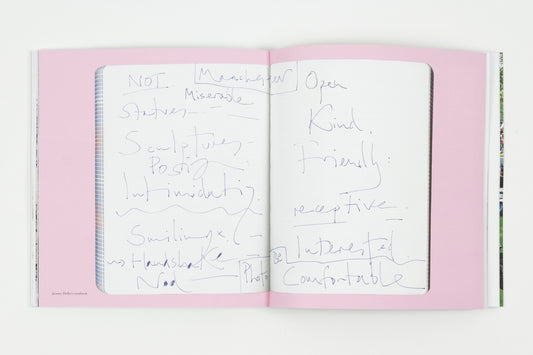 NOT
Manchester
Miserable
Statues
Sculptures
Posing
Intimidating.
Smiling x.
no Handshake
Nod
Open
Kind.
Friendly:
receptive
Interested.
Photo
Comfortable